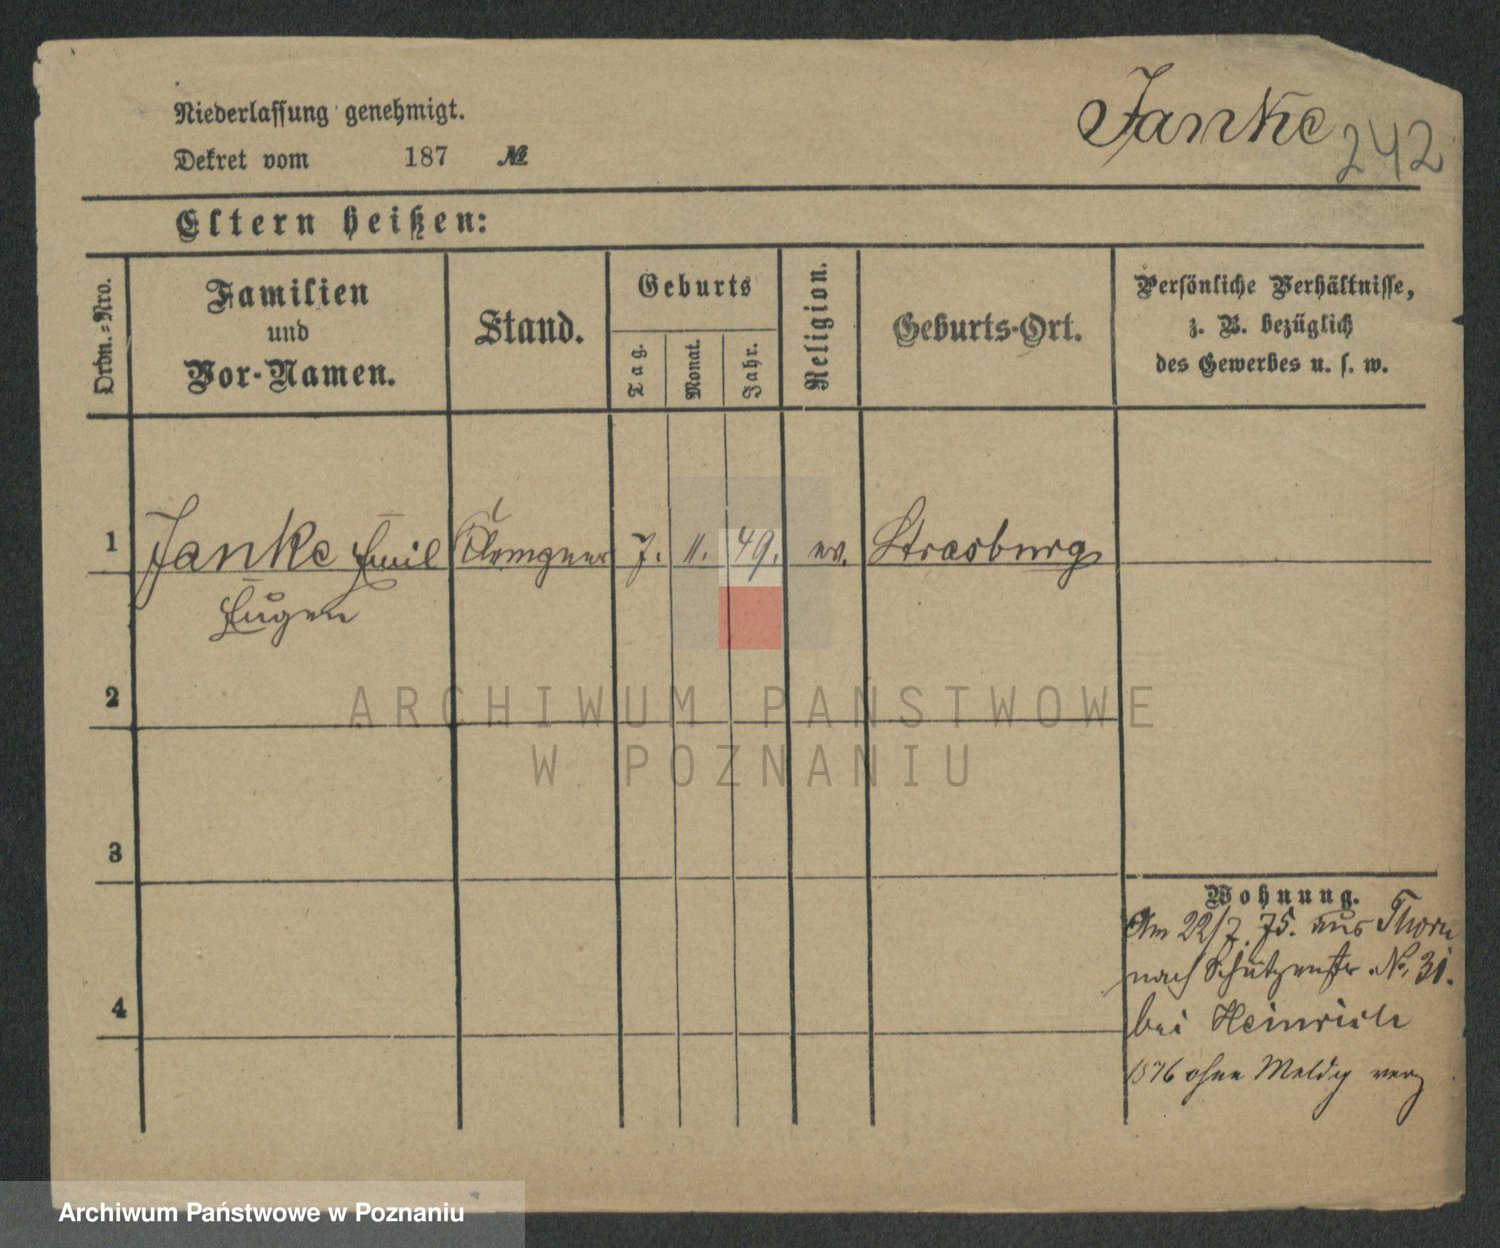 Janke
242
Niederlassung genehmigt.
Dekret vom 187 №
Eltern heißen:
Ordn.-Nro.
Familien
und
Vor-Namen.
Stand.
Geburts
Tag.
Monat.
Jahr.
Religion.
Geburts-Ort.
Persönliche Verhältnisse,
z. B. bezüglich
des Gewerbes u. s. w.
1 Janke Emil Klempner 7. 11. 49. ev. Strasburg
Eugen
2
3
4
Wohnung.
Am 22/7. 75. aus Thorn
nach Schützenstr No. 31.
bei Heinrich
1876 ohne Meldg verz
ARCHIWUM PAŃSTWOWE
W POZNANIU
Archiwum Państwowe w Poznaniu